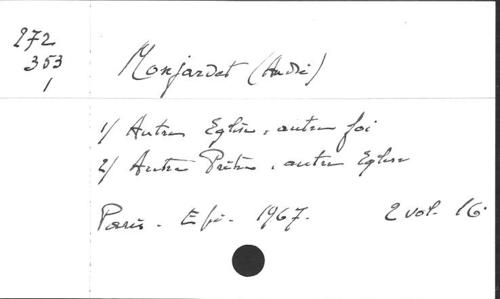 272
353
1
Monjardet (André)
1/ Autre Eglise, autre foi
2/ Autre Prêtre, autre Eglise
Paris - Epi - 1967. 2 vol. 16°